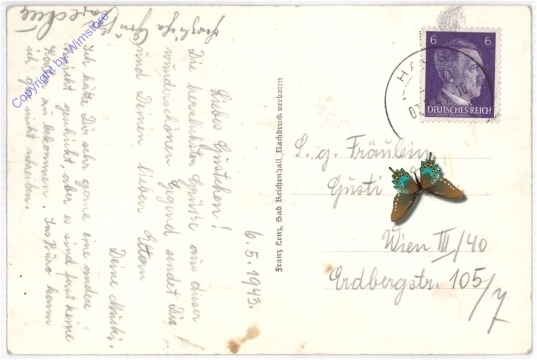 6.5.1943.
Liebes Gusterl!
Die herzlichsten Grüße aus dieser
wunderschönen Gegend sendet Dir
und Deinen lieben Eltern
Deine
Ich hätte Dir sehr gerne eine andere
geschickt, aber es sind fast keine
zu bekommen. Ins Büro kann
ich nicht schreiben.
Herzliche Grüße
Copyright by Wimstore
Franz Lenz, Bad Reichenhall, Nachdruck verboten
6 6
DEUTSCHES REICH
S. g. Fräulein
Gusti
Wien III/40
Erdbergstr. 105/7